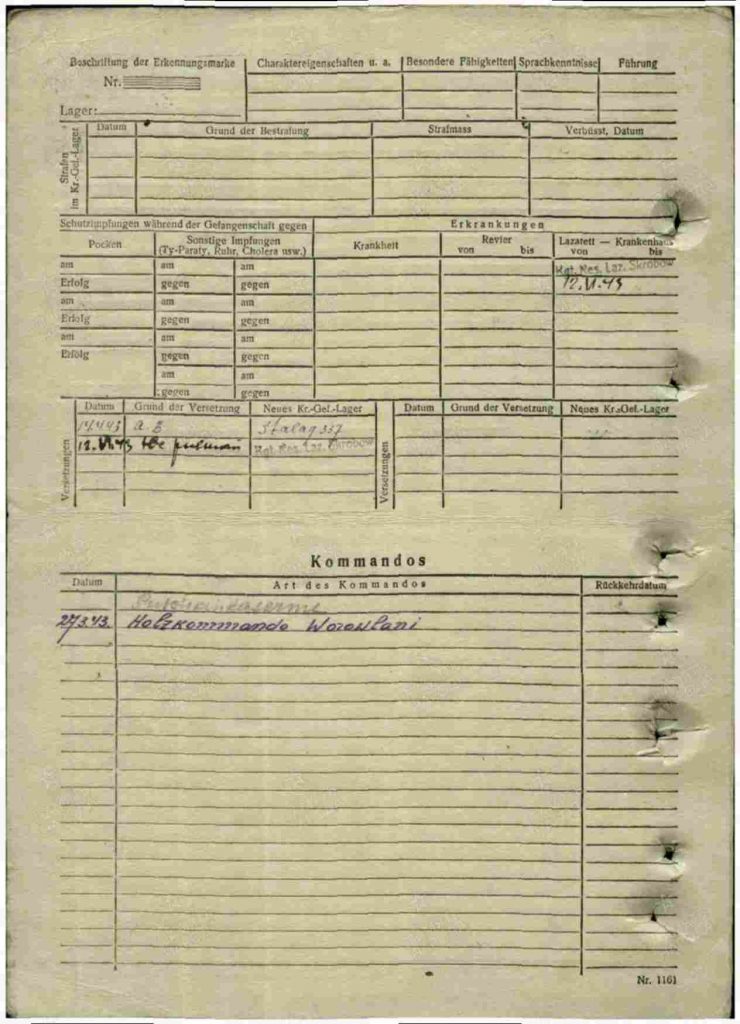 Beschriftung der Erkennungsmarke
Nr.
Lager:
Charaktereigenschaften u. a. Besondere Fähigkeiten Sprachkenntnisse Führung
Strafen im Kr.-Gef.-Lager
Datum Grund der Bestrafung Strafmass Verbüsst, Datum
Schutzimpfungen während der Gefangenschaft gegen Erkrankungen
Pocken Sonstige Impfungen (Ty-Paraty, Ruhr, Cholera usw.) Krankheit Revier von bis Lazarett — Krankenhaus von bis
am am am Kgf. Res. Laz. Skrobow
Erfolg gegen gegen 12.VI.43
am am am
Erfolg gegen gegen
am am am
Erfolg gegen gegen
am am
gegen gegen
Versetzungen
Datum Grund der Versetzung Neues Kr.-Gef.-Lager
Stalag 337
12.VI.43 Kgf. Res. Laz. Skrobow
Versetzungen
Datum Grund der Versetzung Neues Kr.-Gef.-Lager
Kommandos
Datum Art des Kommandos Rückkehrdatum
27.3.43. Holzkommando
Nr. 1161